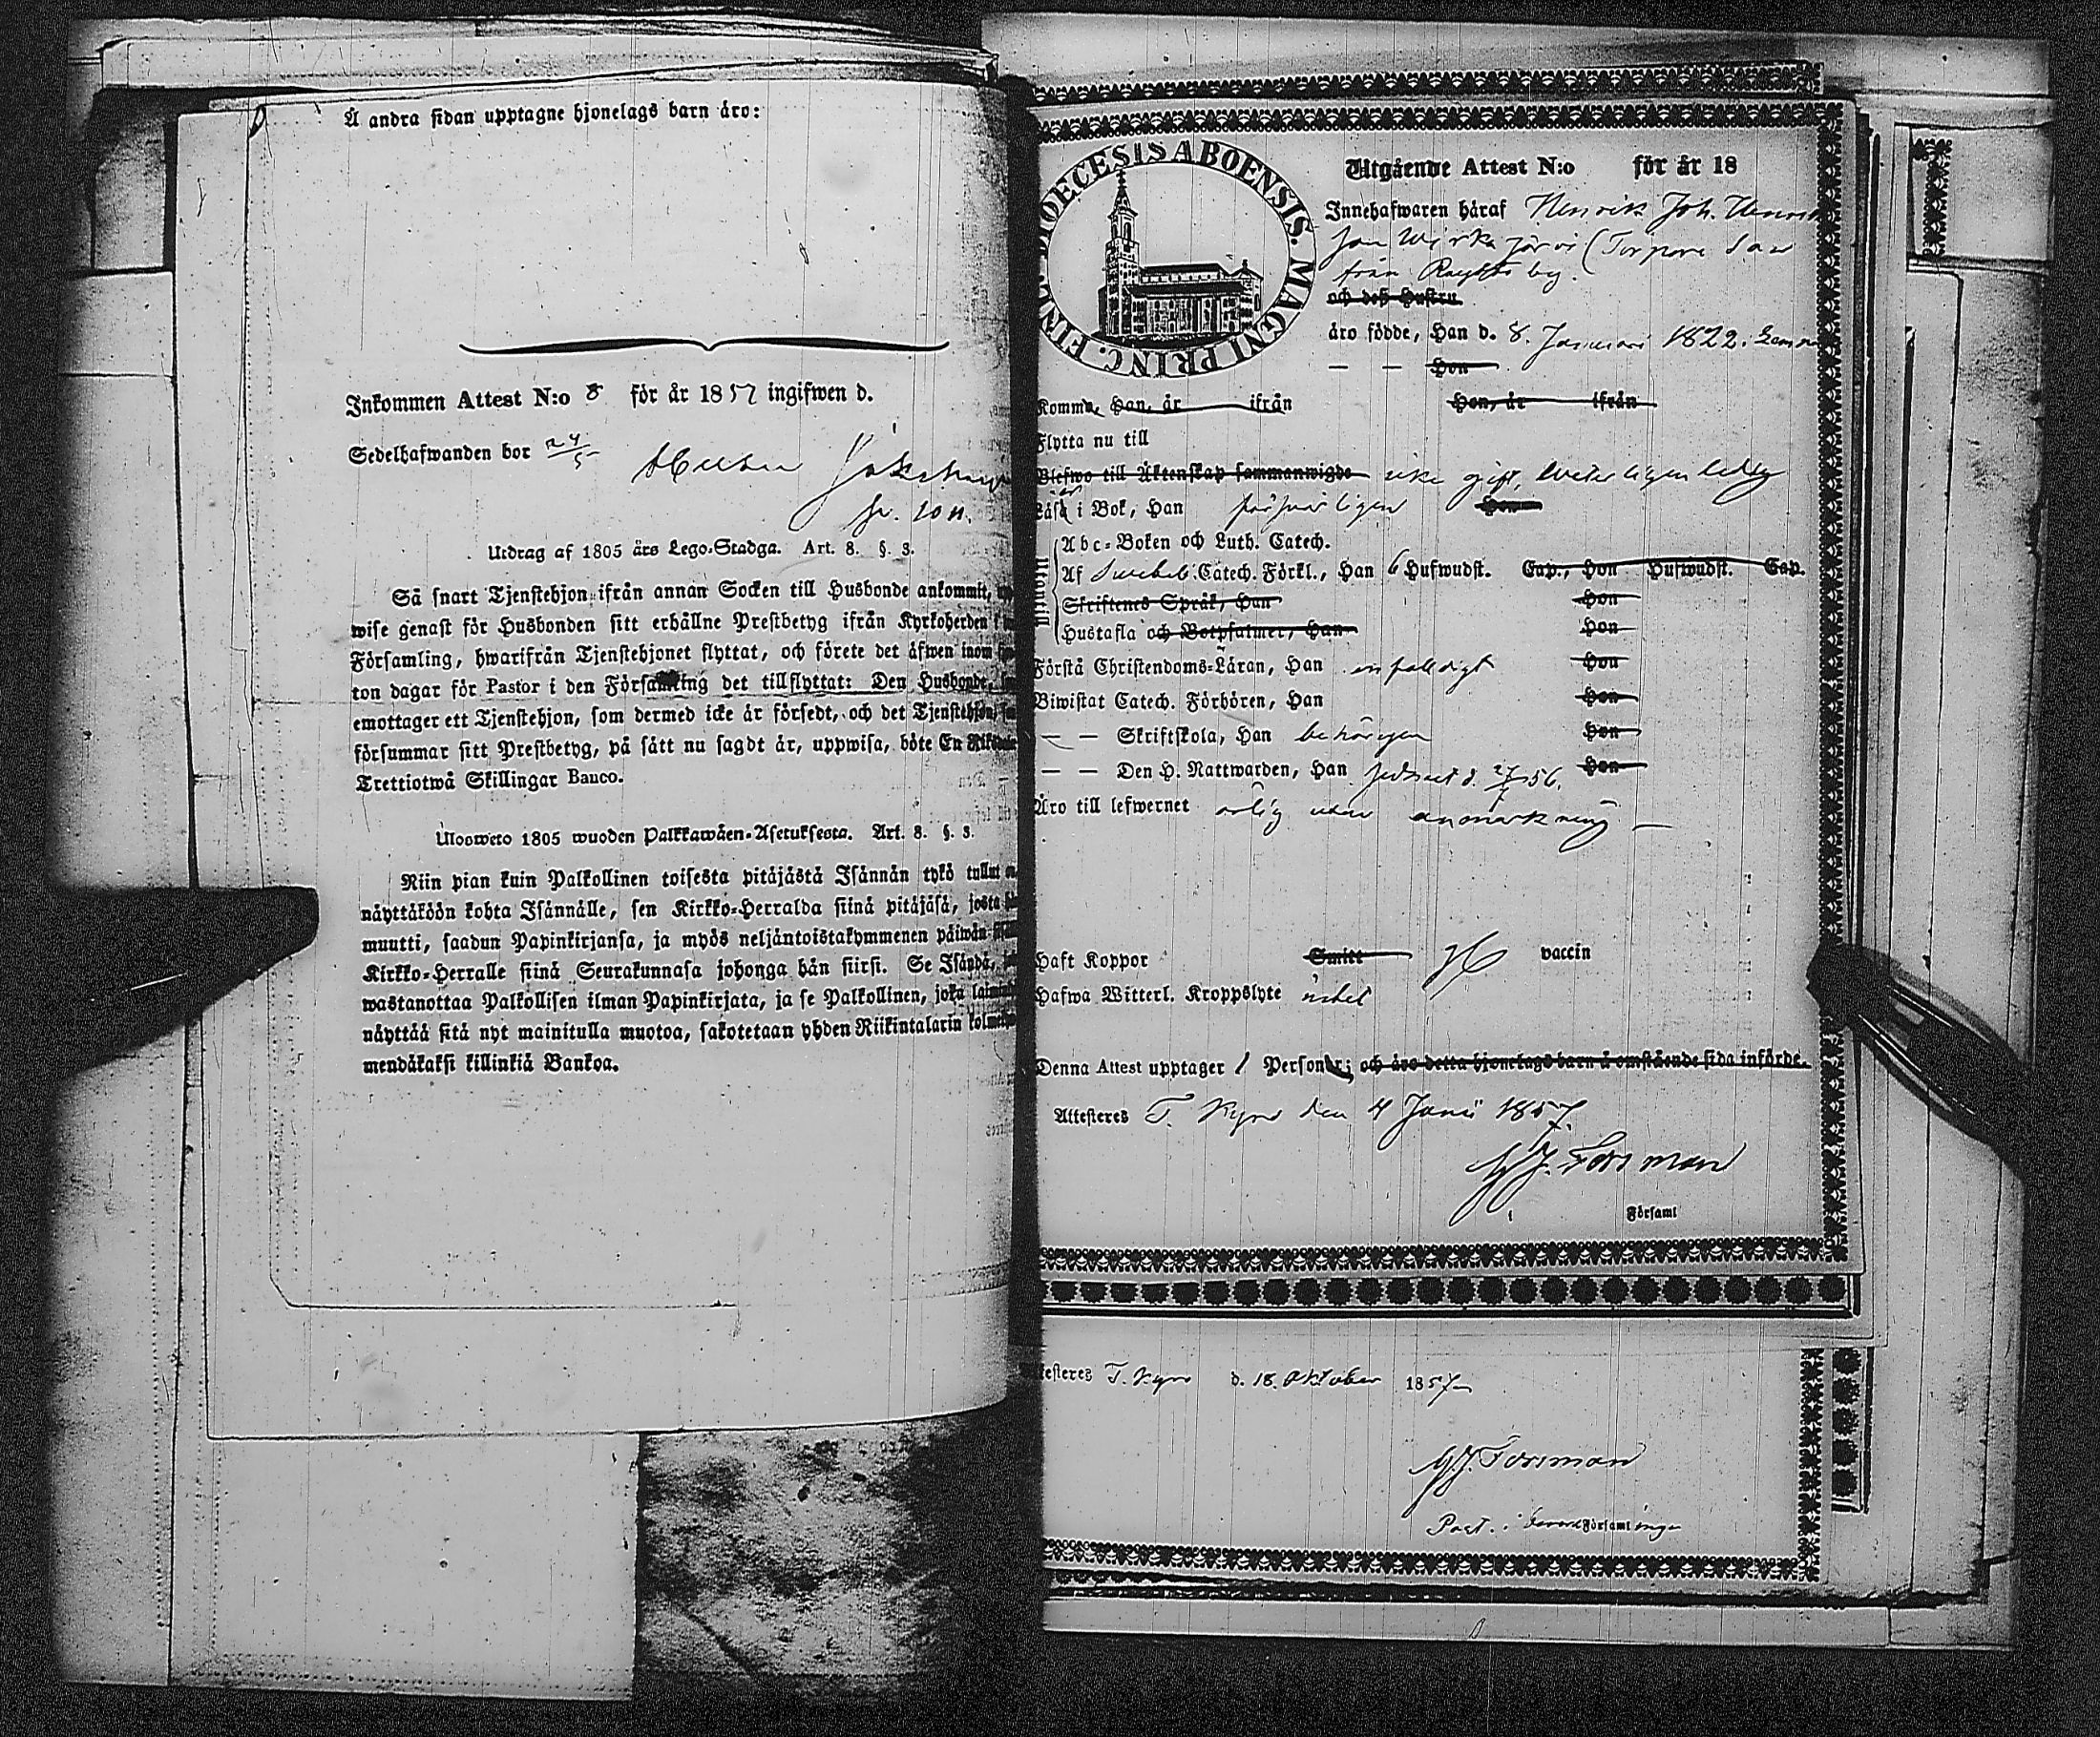 Å andra sidan upptagne hjonelags barn äro:
Inkommen Attest N:o 8 för år 1857 ingifwen d.
Sedelhafwanden bor 24/5
Utdrag af 1805 års Lego-Stadga. Art. 8. §. 3.
Så snart Tjenstehjon ifrån annan Socken till Husbonde ankommit,
wise genast för Husbonden sitt erhållne Prestbetyg ifrån Kyrkoherden
Församling, hwarifrån Tjenstehjonet flyttat, och förete det äfwen inom
ton dagar för Pastor i den Församling det tillflyttat: Den Husbonde,
emottager ett Tjenstehjon, som dermed icke är försedt, och det Tjenstehjon,
försummar sitt Prestbetyg, på sätt nu sagdt är, uppwisa, böte En
Trettiotwå Skillingar Banco.
Ulosweto 1805 wuoden Palkkawäen-Asetuksesta. Art. 8. §. 3.
Niin pian kuin Palkollinen toisesta pitäjästä Isännän tykö tullut
näyttäköön kohta Isännälle, sen Kirkko-Herralda siinä pitäjäsä, josta
muutti, saadun Papinkirjansa, ja myös neljäntoistakymmenen päiwän
Kirkko-Herralle siinä Seurakunnasa johonga hän siirsi. Se Isändä,
wastanottaa Palkollisen ilman Papinkirjata, ja se Palkollinen, joka
näyttää sitä nyt mainitulla muotoa, sakotetaan yhden Riikintalarin
mendäkaksi killinkiä Bankoa.
DIOECESIS ABOENSIS. MAGNI PRINC. FINL.
Utgående Attest N:o för år 18
Innehafwaren häraf Henrik Joh. Henrik
son Wirkajärvi (Torpare Son
från by.
och deß Hustru
äro födde, Han d. 8. Januari 1822.
— — Hon
Komma, Han, år ifrån Hon, år ifrån
Flytta nu till
Blefwo till Äktenskap sammanwigde icke gift, weterligen ledig
Läsa i Bok, Han försvarligen Hon
Utantill
Abc-Boken och Luth. Catech.
Af Svebel. Catech. Förkl., Han 6 Hufwudst. Cap., Hon Hufwudst. Cap.
Skriftenes Språk, Han Hon
Hustafla och Botpsalmer, Han Hon
Förstå Christendoms-Läran, Han enfaldigt Hon
Biwistat Catech. Förhören, Han Hon
— — Skriftskola, Han behörigen Hon
— — Den H. Nattwarden, Han 56. Hon
Äro till lefwernet ärlig utan anmärkning —
Haft Koppor Smitt vaccin
Hafwa Witterl. Kroppslyte intet
Denna Attest upptager 1 Personer; och äro detta hjonelags barn å omstående sida införde.
Attesteres T. Kyro den 4 Junii 1857.
Forsman
Församl
Attesteres T. Kyro d. 18. Oktober 1857
Forsman
Past. i Församlingen